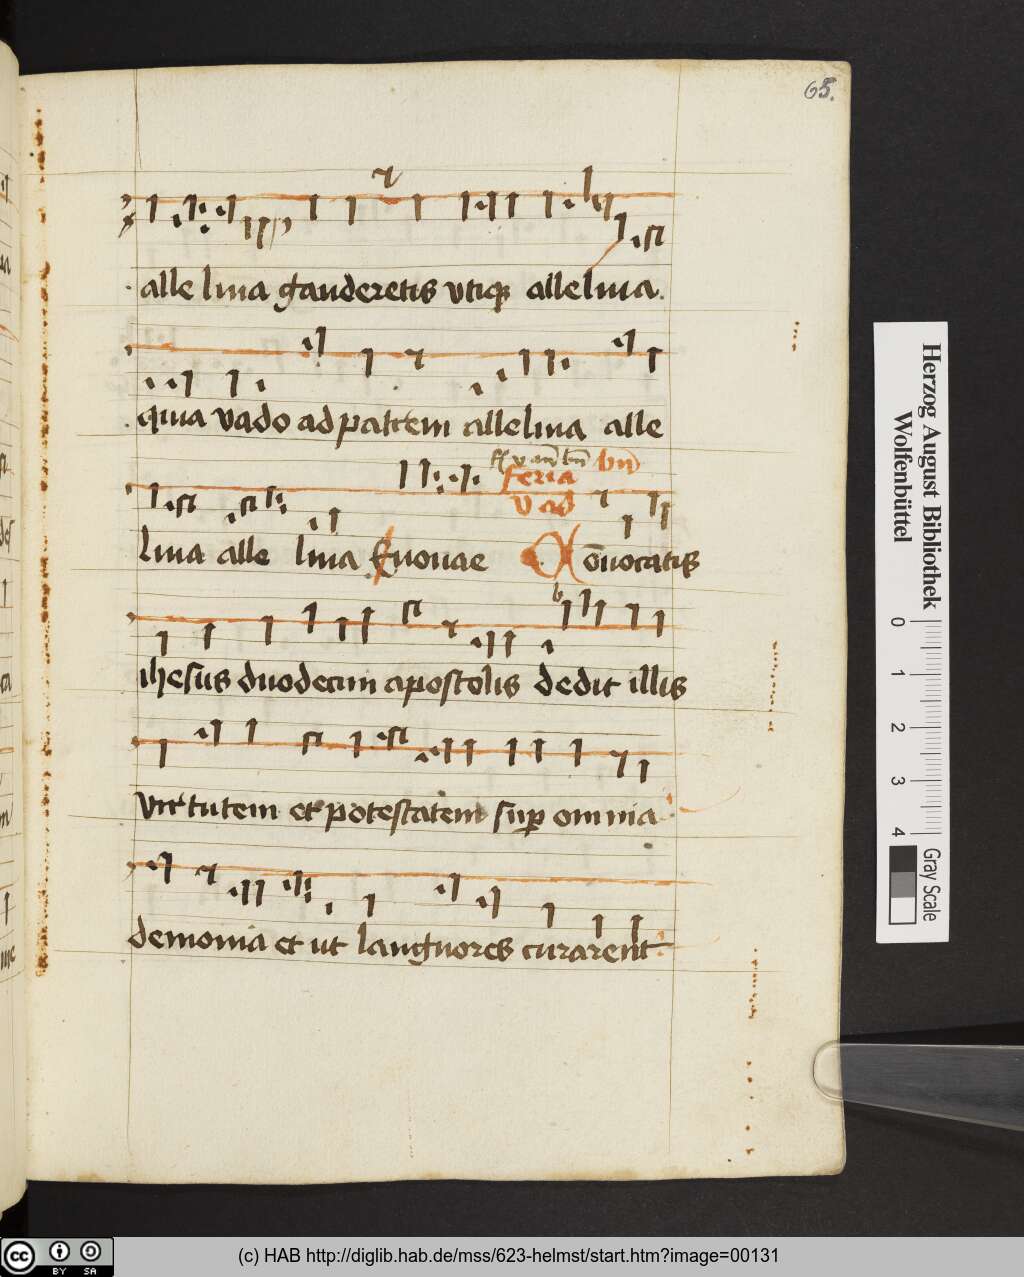 65.
alle luia gauderetis vtiqȝ alleluia.
quia vado ad patrem alleluia alle
bn̄
feria
v ad
luia alle luia Euouae Cōuocatis
ihesus duodecim apostolis dedit illis
virtutem et potestatem suꝑ omnia
demonia et ut languores curarent
Herzog August Bibliothek
Wolfenbüttel
0 1 2 3 4
Gray Scale
cc BY SA
(c) HAB http://diglib.hab.de/mss/623-helmst/start.htm?image=00131